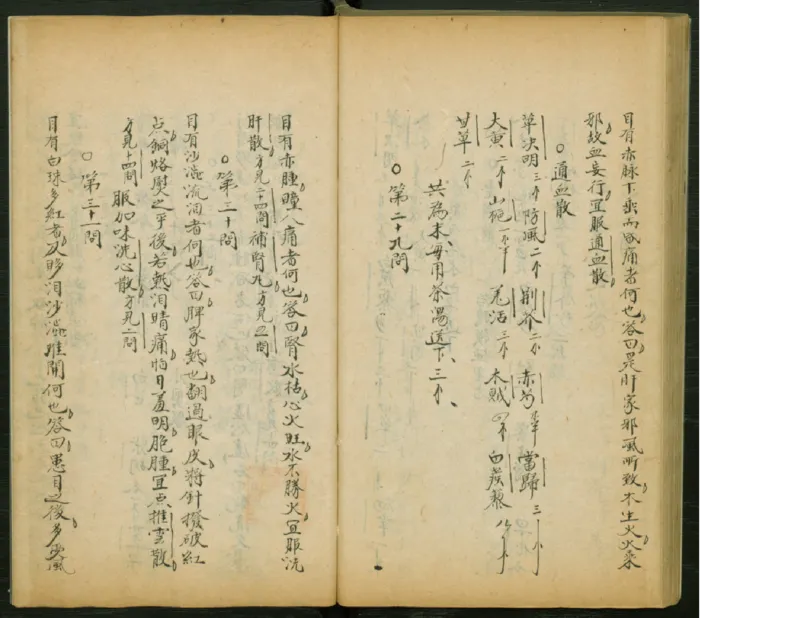 目有赤脉下垂而風痛者何也答曰是肝家邪風所致木生火火來
邪故血妄行宜服通血散
○通血散
草决明三个防風二个荆芥二个赤芍 當歸三个
大黄二个山梔 羌活三个木賊四个白蒺藜八个
甘草二个
共為末每用茶湯送下三个
○第二十九問
目有赤腫瞳人痛者何也答曰腎水枯心火旺水不勝火宜服洗
肝散方見二十四問補腎丸方見 問
○第三十問
目有沙澁流泪者何也答曰脾家熱也翻過眼皮將針撥破紅
点銅烙熨之平後若熱泪睛痛怕日羞明胞腫宜点推雲散
方見十四問服加味洗心散方見二問
○第三十一問
目有白珠多紅者及眵泪沙澁難開何也答曰患目之後多受風